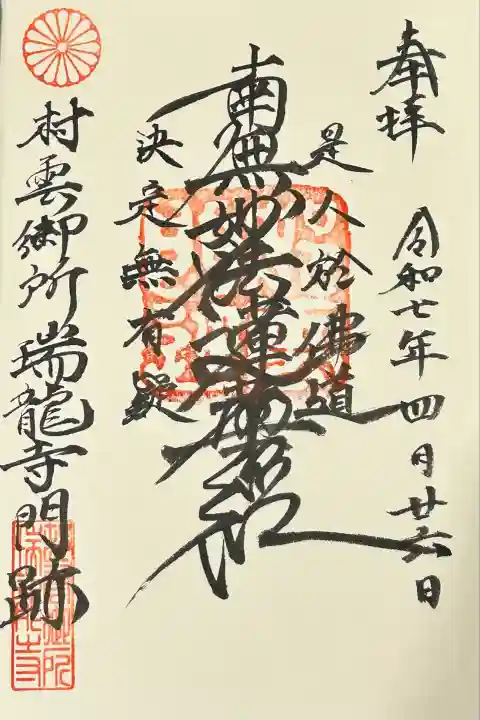 奉拝
令和七年四月廿六日
是人於佛道
南無妙法蓮華經
決定無有疑
村雲御所瑞龍寺門跡